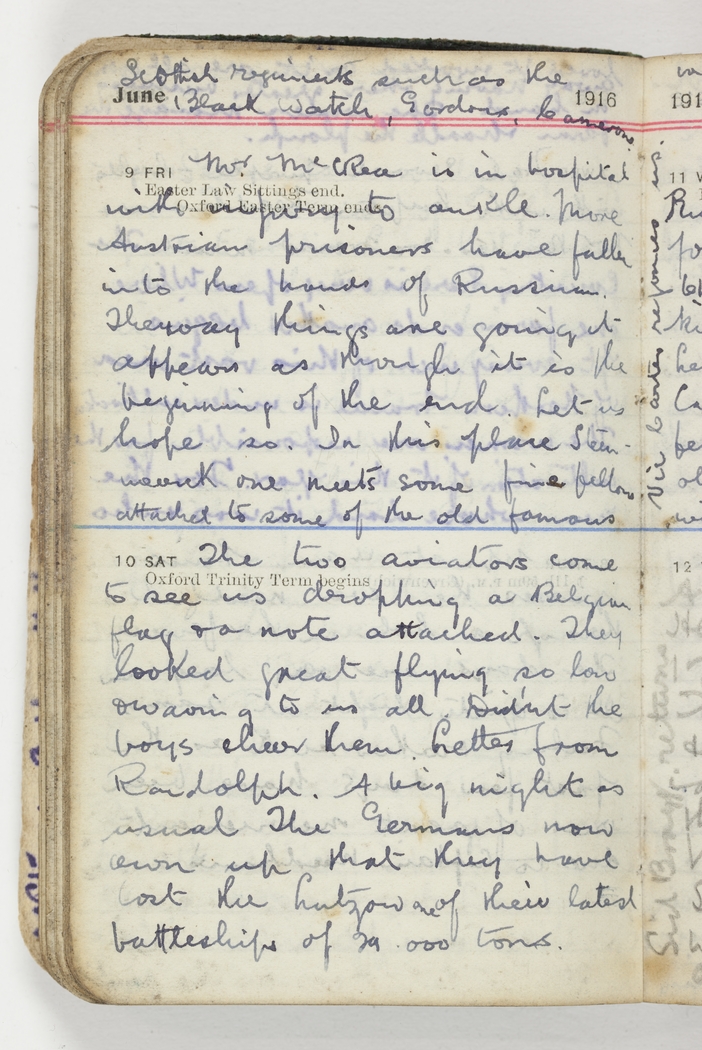 Scottish regiments such as the
June Black Watch, Gordons, Camerons 1916
9 FRI Mr. McCrea is in hospital
Easter Law Sittings end.
with injury to ankle. More
Oxford Easter Term ends.
Austrian prisoners have fallen
into the hands of Russian.
The way things are going it
appears as though it is the
beginning of the end. Let us
hope so. In this place Steen-
werck one meets some fine fellows
attached to some of the old famous
10 SAT The two aviators come
Oxford Trinity Term begins
to see us dropping a Belgian
flag & a note attached. They
looked great flying so low
& waving to us all. Didn't the
boys cheer them. Letter from
Randolph. A big night as
usual The Germans now
own up that they have
lost the Lutzow one of their latest
battleships of 000 tons.
Vic Carter resumes
1917
11 W
12
Sid returns